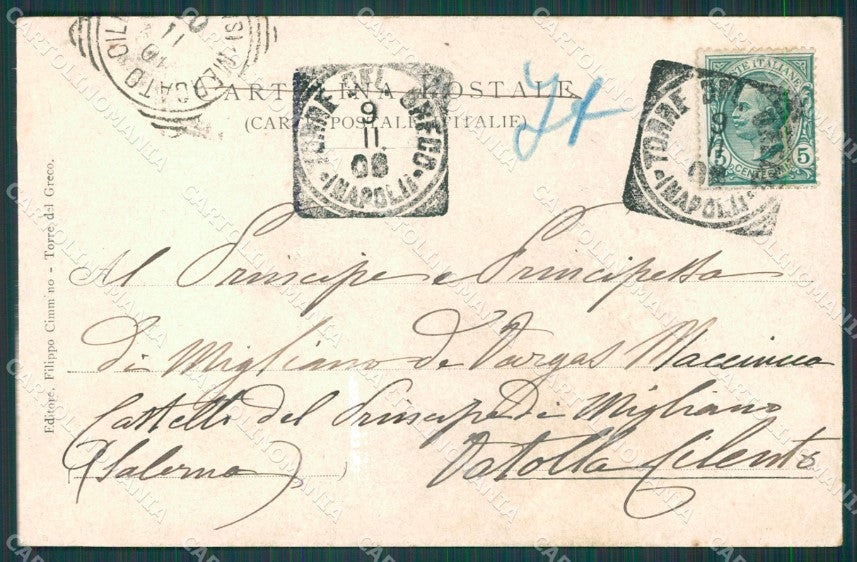 CARTOLINA POSTALE
(CARTE POSTALE D'ITALIE)
TORRE DEL GRECO
9
11
08
(NAPOLI)
TORRE DEL
9
11
08
(NAPOLI)
POSTE ITALIANE
5 5
CENTESIMI
MERCATO CIL
11
Al Principe e Principessa
di Migliano de Vargas Macciucca
Castelli del Principe di Migliano
(Salerno) Vatolla Cilento
Editore. Filippo Cimmino - Torre del Greco.
CARTOLINOMANIA